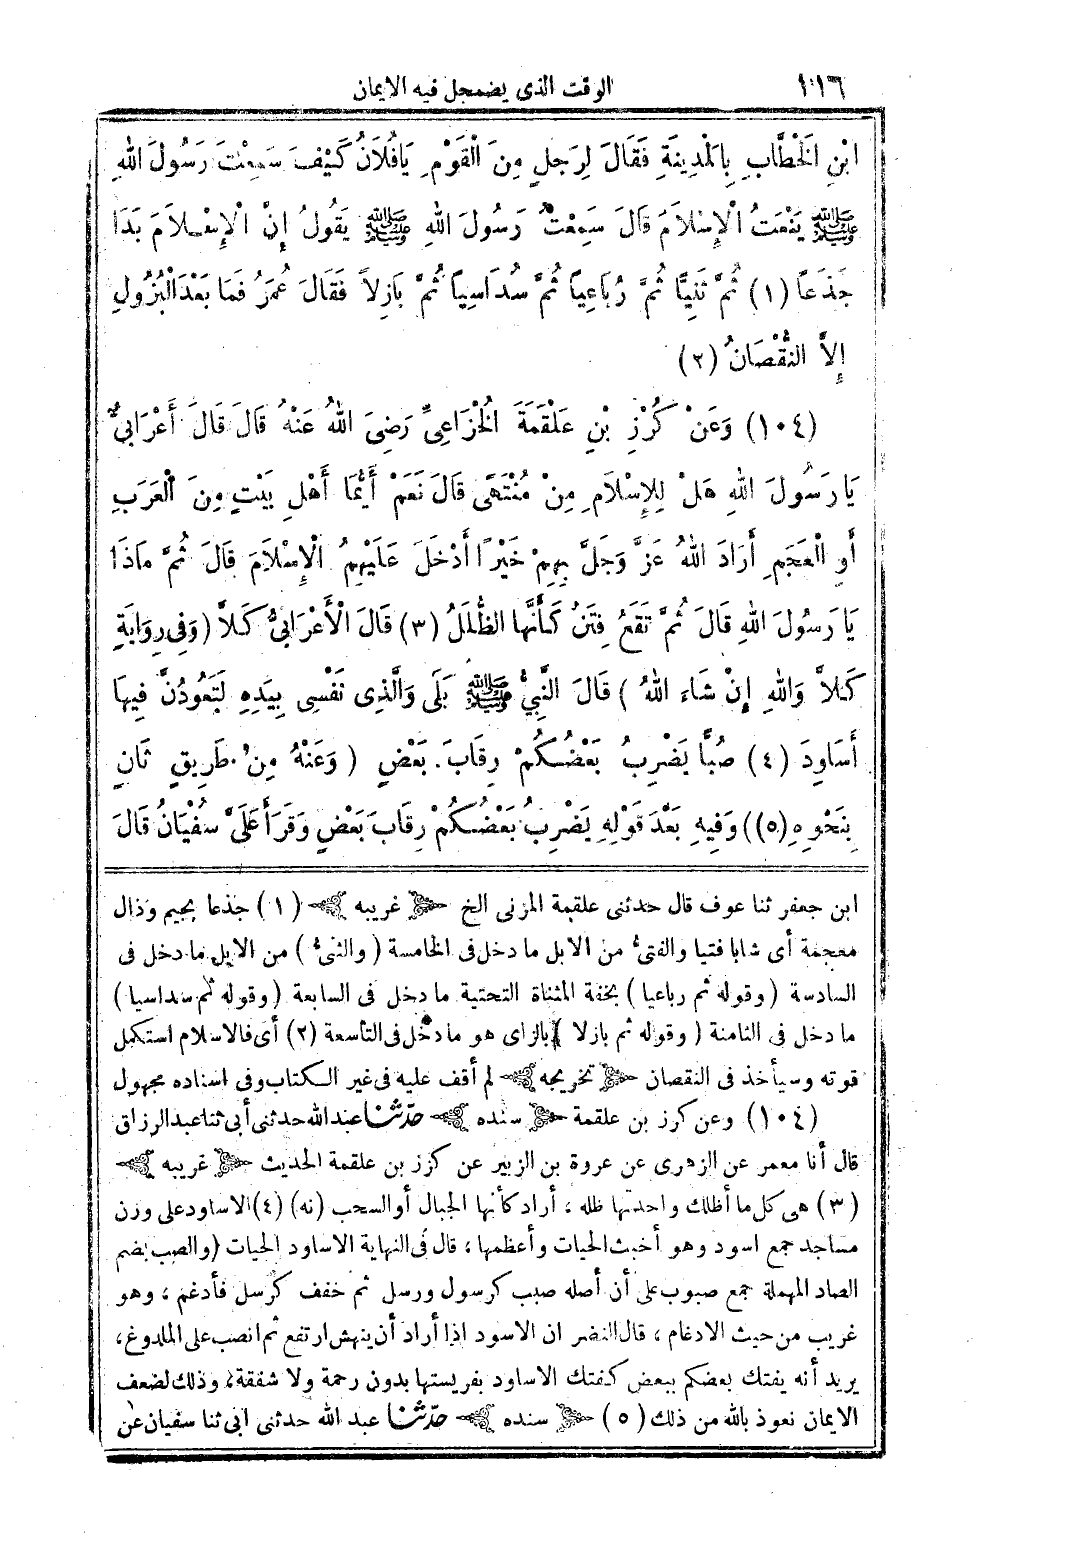 ١١٦ الوقت الذى يضمحل فيه الايمان
ابْنِ الْخَطَّابِ بِالْمَدِينَةِ فَقَالَ لِرَجُلٍ مِنَ الْقَوْمِ يَافُلَانُ كَيْفَ سَمِعْتَ رَسُولَ اللهِ
ﷺ يَنْعَتُ الْإِسْلَامَ قَالَ سَمِعْتُ رَسُولَ اللهِ ﷺ يَقُولُ إِنَّ الْإِسْلَامَ بَدَا
جَذَعًا (١) ثُمَّ ثَنِيًّا ثُمَّ رُبَاعِيًّا ثُمَّ سُدَاسِيًّا ثُمَّ بَازِلًا فَقَالَ عُمَرُ فَمَا بَعْدَ الْبُزُولِ
إِلَّا النُّقْصَانُ (٢)
(١٠٤) وَعَنْ كُرْزِ بْنِ عَلْقَمَةَ الْخُزَاعِيِّ رَضِىَ اللهُ عَنْهُ قَالَ قَالَ أَعْرَابِىٌّ
يَا رَسُولَ اللهِ هَلْ لِلْإِسْلَامِ مِنْ مُنْتَهَى قَالَ نَعَمْ أَيُّمَا أَهْلِ بَيْتٍ مِنَ الْعَرَبِ
أَوِ الْعَجَمِ أَرَادَ اللهُ عَزَّ وَجَلَّ بِهِمْ خَيْرًا أَدْخَلَ عَلَيْهِمُ الْإِسْلَامَ قَالَ ثُمَّ مَاذَا
يَا رَسُولَ اللهِ قَالَ ثُمَّ تَقَعُ فِتَنٌ كَأَنَّهَا الظُّلَلُ (٣) قَالَ الْأَعْرَابِىُّ كَلَّا (وَفِى رِوَايَةٍ
كَلَّا وَاللهِ إِنْ شَاءَ اللهُ) قَالَ النَّبِيُّ ﷺ بَلَى وَالَّذِى نَفْسِى بِيَدِهِ لَتَعُودُنَّ فِيهَا
أَسَاوِدَ (٤) صُبًّا يَضْرِبُ بَعْضُكُمْ رِقَابَ بَعْضٍ (وَعَنْهُ مِنْ طَرِيقٍ ثَانٍ
بِنَحْوِهِ (٥)) وَفِيهِ بَعْدَ قَوْلِهِ يَضْرِبُ بَعْضُكُمْ رِقَابَ بَعْضٍ وَقَرَأَ عَلَىَّ سُفْيَانُ قَالَ
ابن جعفر ثنا عوف قال حدثنى علقمة المزنى الخ ﴿غريبه﴾ (١) جذعا بجيم وذال
معجمة أى شابا فتيا والفتىُّ من الابل ما دخل فى الخامسة (والثنىُّ) من الابل ما دخل فى
السادسة (وقوله ثم رباعيا) بخفة المثناة التحتية ما دخل فى السابعة (وقوله ثم سداسيا)
ما دخل فى الثامنة (وقوله ثم بازلا) بالزاى هو ما دخل فى التاسعة (٢) أى فالاسلام استكمل
قوته وسيأخذ فى النقصان ﴿تخريجه﴾ لم أقف عليه فى غير الكتاب وفى اسناده مجهول
(١٠٤) وعن كرز بن علقمة ﴿سنده﴾ حدّثنا عبد الله حدثنى أبى ثنا عبد الرزاق
قال أنا معمر عن الزهرى عن عروة بن الزبير عن كرز بن علقمة الحديث ﴿غريبه﴾
(٣) هى كل ما أظلك واحدتها ظله ، أراد كأنها الجبال أو السحب (نه) (٤) الاساود على وزن
مساجد جمع اسود وهو أخبث الحيات وأعظمها ، قال فى النهاية الاساود الحيات (والصب) بضم
الصاد المهملة جمع صبوب على أن أصله صبب كرسول ورسل ثم خفف كرسل فأدغم ، وهو
غريب من حيث الادغام ، قال النضر ان الاسود اذا أراد أن ينهش ارتفع ثم انصب على الملدوغ ،
يريد أنه يفتك بعضكم ببعض كفتك الاساود بفريستها بدون رحمة ولا شفقة ، وذلك لضعف
الايمان نعوذ بالله من ذلك (٥) ﴿سنده﴾ حدّثنا عبد الله حدثنى ابى ثنا سفيان عن